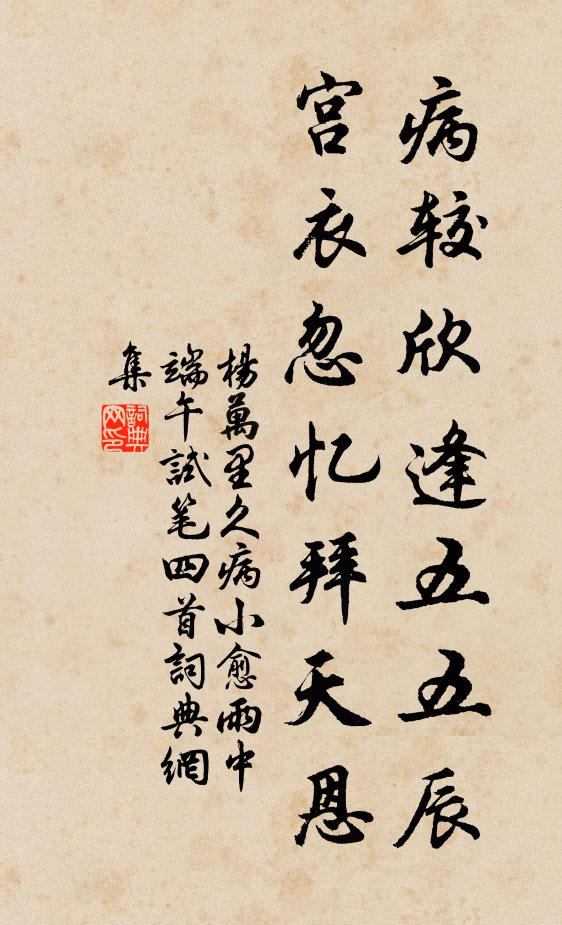 病較欣逢五五辰
宫衣忽忆拜天恩
楊萬里久病小愈雨中
端午試笔四首詞典網
集
詞典
网印